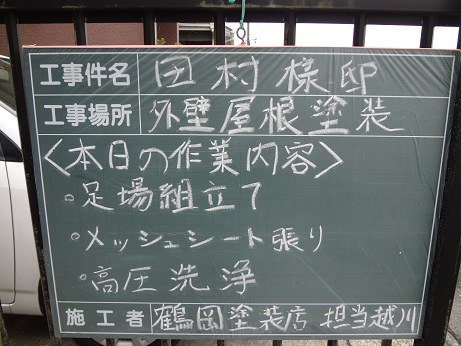 工事件名 田村様邸
工事場所 外壁屋根塗装
<本日の作業内容>
・足場組立て
・メッシュシート張り
・高圧洗浄
施工者 鶴岡塗装店 担当越川